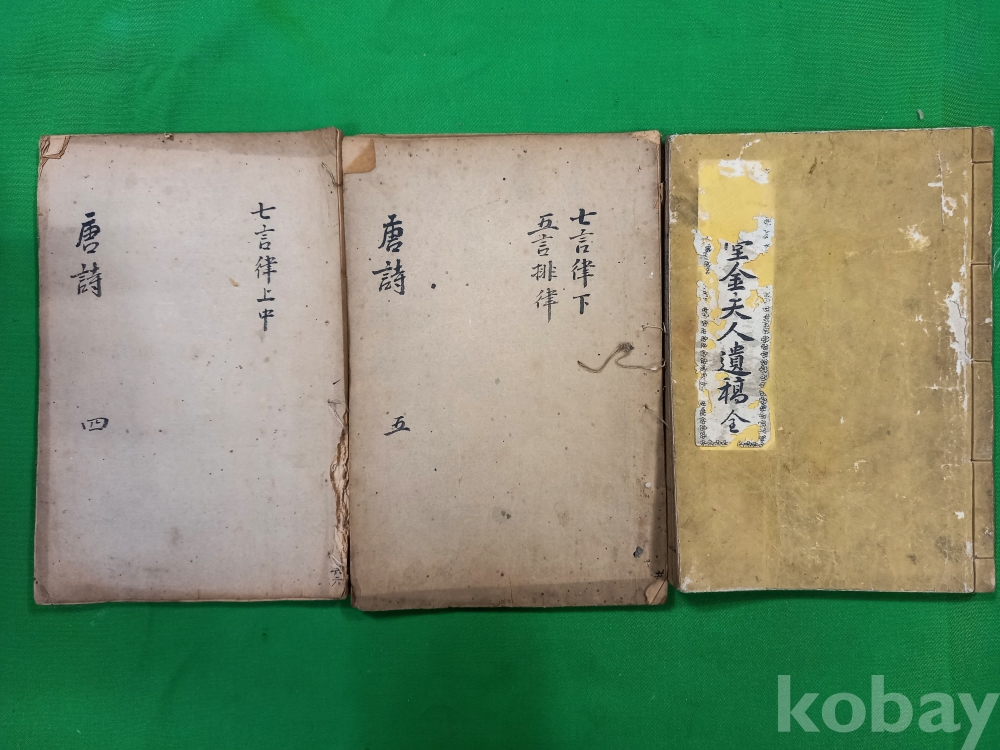 七言律上中
唐詩
四
七言律下
五言排律
唐詩
五
堂金夫人遺稿全
kobay